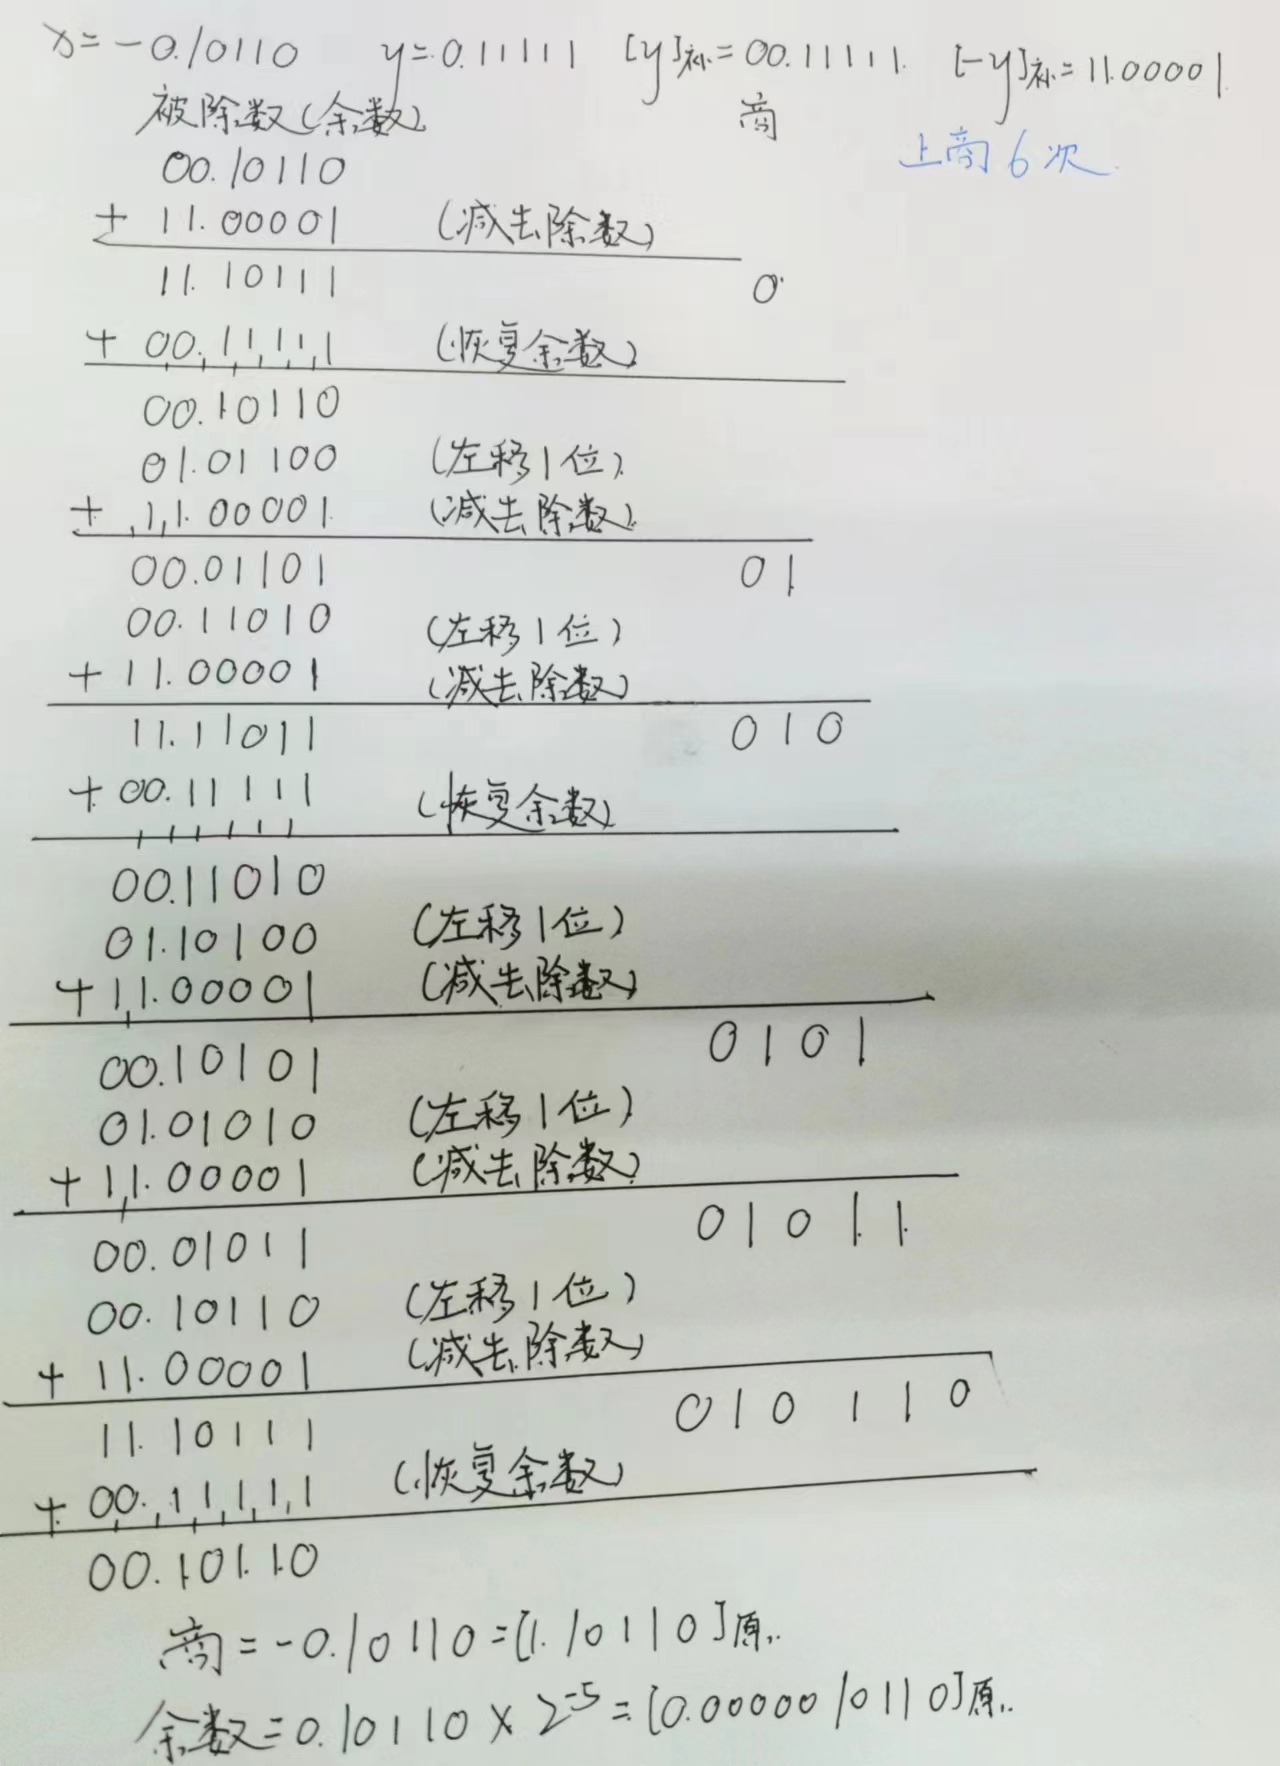 x=-0.10110 y=0.11111 [y]补=00.11111. [-y]补=11.00001
被除数(余数) 商
上商6次
00.10110
+ 11.00001 (减去除数)
11.10111 0
+ 00.11111 (恢复余数)
00.10110
01.01100 (左移1位)
+ 11.00001 (减去除数)
00.01101 01
00.11010 (左移1位)
+ 11.00001 (减去除数)
11.11011 010
+ 00.11111 (恢复余数)
00.11010
01.10100 (左移1位)
+ 11.00001 (减去除数)
00.10101 0101
01.01010 (左移1位)
+ 11.00001 (减去除数)
00.01011 01011
00.10110 (左移1位)
+ 11.00001 (减去除数)
11.10111 010110
+ 00.11111 (恢复余数)
00.10110
商=-0.10110=[1.10110]原.
余数=0.10110×2⁻⁵=[0.0000010110]原.